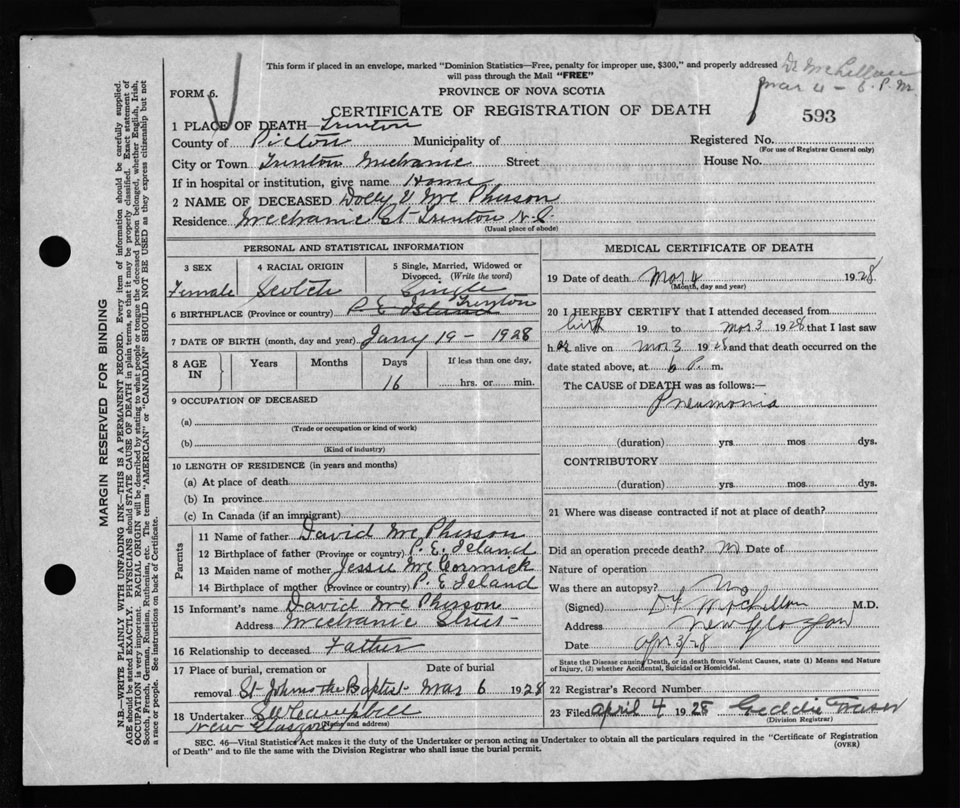 This form if placed in an envelope, marked "Dominion Statistics—Free, penalty for improper use, $300," and properly addressed
will pass through the Mail "FREE"
Dr McLellan
Mar 4 - 6. P. M
FORM 6.
PROVINCE OF NOVA SCOTIA
CERTIFICATE OF REGISTRATION OF DEATH
593
1 PLACE OF DEATH Trenton
County of Pictou Municipality of Registered No.
(For use of Registrar General only)
City or Town Trenton Mechanic Street House No.
If in hospital or institution, give name Home
2 NAME OF DECEASED Dolly V Mc Pherson
Residence Mechanic St Trenton N.S.
(Usual place of abode)
PERSONAL AND STATISTICAL INFORMATION
3 SEX 4 RACIAL ORIGIN 5 Single, Married, Widowed or
Divorced. (Write the word)
Female Scotch Single
Trenton
6 BIRTHPLACE (Province or country) P. E Island
7 DATE OF BIRTH (month, day and year) Jany 19 - 1928
8 AGE IN Years Months Days If less than one day,
16 hrs. or min.
9 OCCUPATION OF DECEASED
(a)
(Trade or occupation or kind of work)
(b)
(Kind of industry)
10 LENGTH OF RESIDENCE (in years and months)
(a) At place of death
(b) In province
(c) In Canada (if an immigrant)
Parents
11 Name of father David Mc Pherson
12 Birthplace of father (Province or country) P. E. Island
13 Maiden name of mother Jessie McCormick
14 Birthplace of mother (Province or country) P. E Island
15 Informant's name David Mc Pherson
Address Mechanic Street
16 Relationship to deceased Father
17 Place of burial, cremation or Date of burial
removal St Johns the Baptist Mar 6 1928
18 Undertaker Campbell
(Name and address)
New Glasgow
MEDICAL CERTIFICATE OF DEATH
19 Date of death Mar 4 1928
(Month, day and year)
20 I HEREBY CERTIFY that I attended deceased from
birth 19 to Mar 3 1928 that I last saw
her alive on Mar 3 1928 and that death occurred on the
date stated above, at 6 P. m.
The CAUSE of DEATH was as follows:—
Pneumonia
(duration) yrs. mos dys.
CONTRIBUTORY
(duration) yrs. mos dys.
21 Where was disease contracted if not at place of death?
Did an operation precede death? no Date of
Nature of operation
Was there an autopsy? No
(Signed) McLellan M.D.
Address New Glasgow
Date Apr 3/28
State the Disease causing Death, or in death from Violent Causes, state (1) Means and Nature
of Injury, (2) whether Accidental, Suicidal or Homicidal.
22 Registrar's Record Number
23 Filed April 4 1928 Geddie Fraser
(Division Registrar)
SEC. 46—Vital Statistics Act makes it the duty of the Undertaker or person acting as Undertaker to obtain all the particulars required in the "Certificate of Registration
of Death" and to file the same with the Division Registrar who shall issue the burial permit.
(OVER)
MARGIN RESERVED FOR BINDING
N.B.—WRITE PLAINLY WITH UNFADING INK—THIS IS A PERMANENT RECORD. Every item of information should be carefully supplied.
AGE should be stated EXACTLY. PHYSICIANS should STATE CAUSE OF DEATH in plain terms, so that it may be properly classified. Exact statement of
OCCUPATION is very important. RACIAL ORIGIN will be described by stating to what people or tongue the deceased person belonged, whether English, Irish,
Scotch, French, German, Russian, Ruthenian, etc. The terms "AMERICAN" or "CANADIAN" SHOULD NOT BE USED as they express citizenship but not
a race or people. See instructions on back of Certificate.